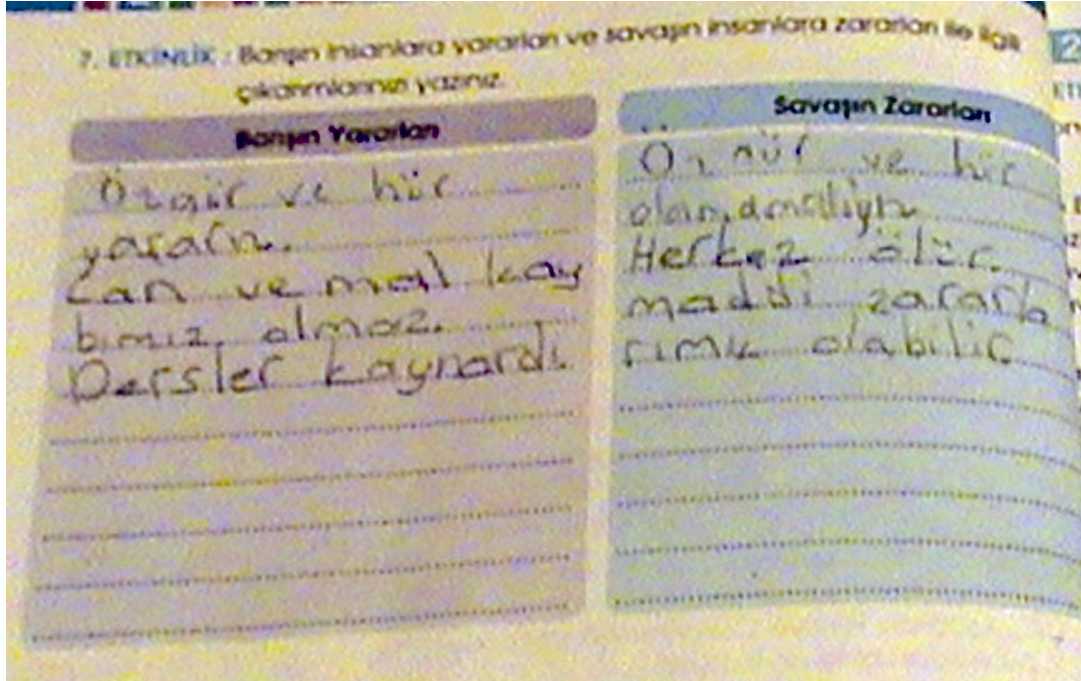 7. ETKİNLİK : Barışın insanlara yararları ve savaşın insanlara zararları ile ilgili
çıkarımlarınızı yazınız.
Barışın Yararları
Özgür ve hür
yaşarız.
Can ve mal kay
bımız olmaz.
Dersler kaynardı.
Savaşın Zararları
ve hür
Herkez ölür.
maddi zararla
rımız olabilir.
2
ETİ
7